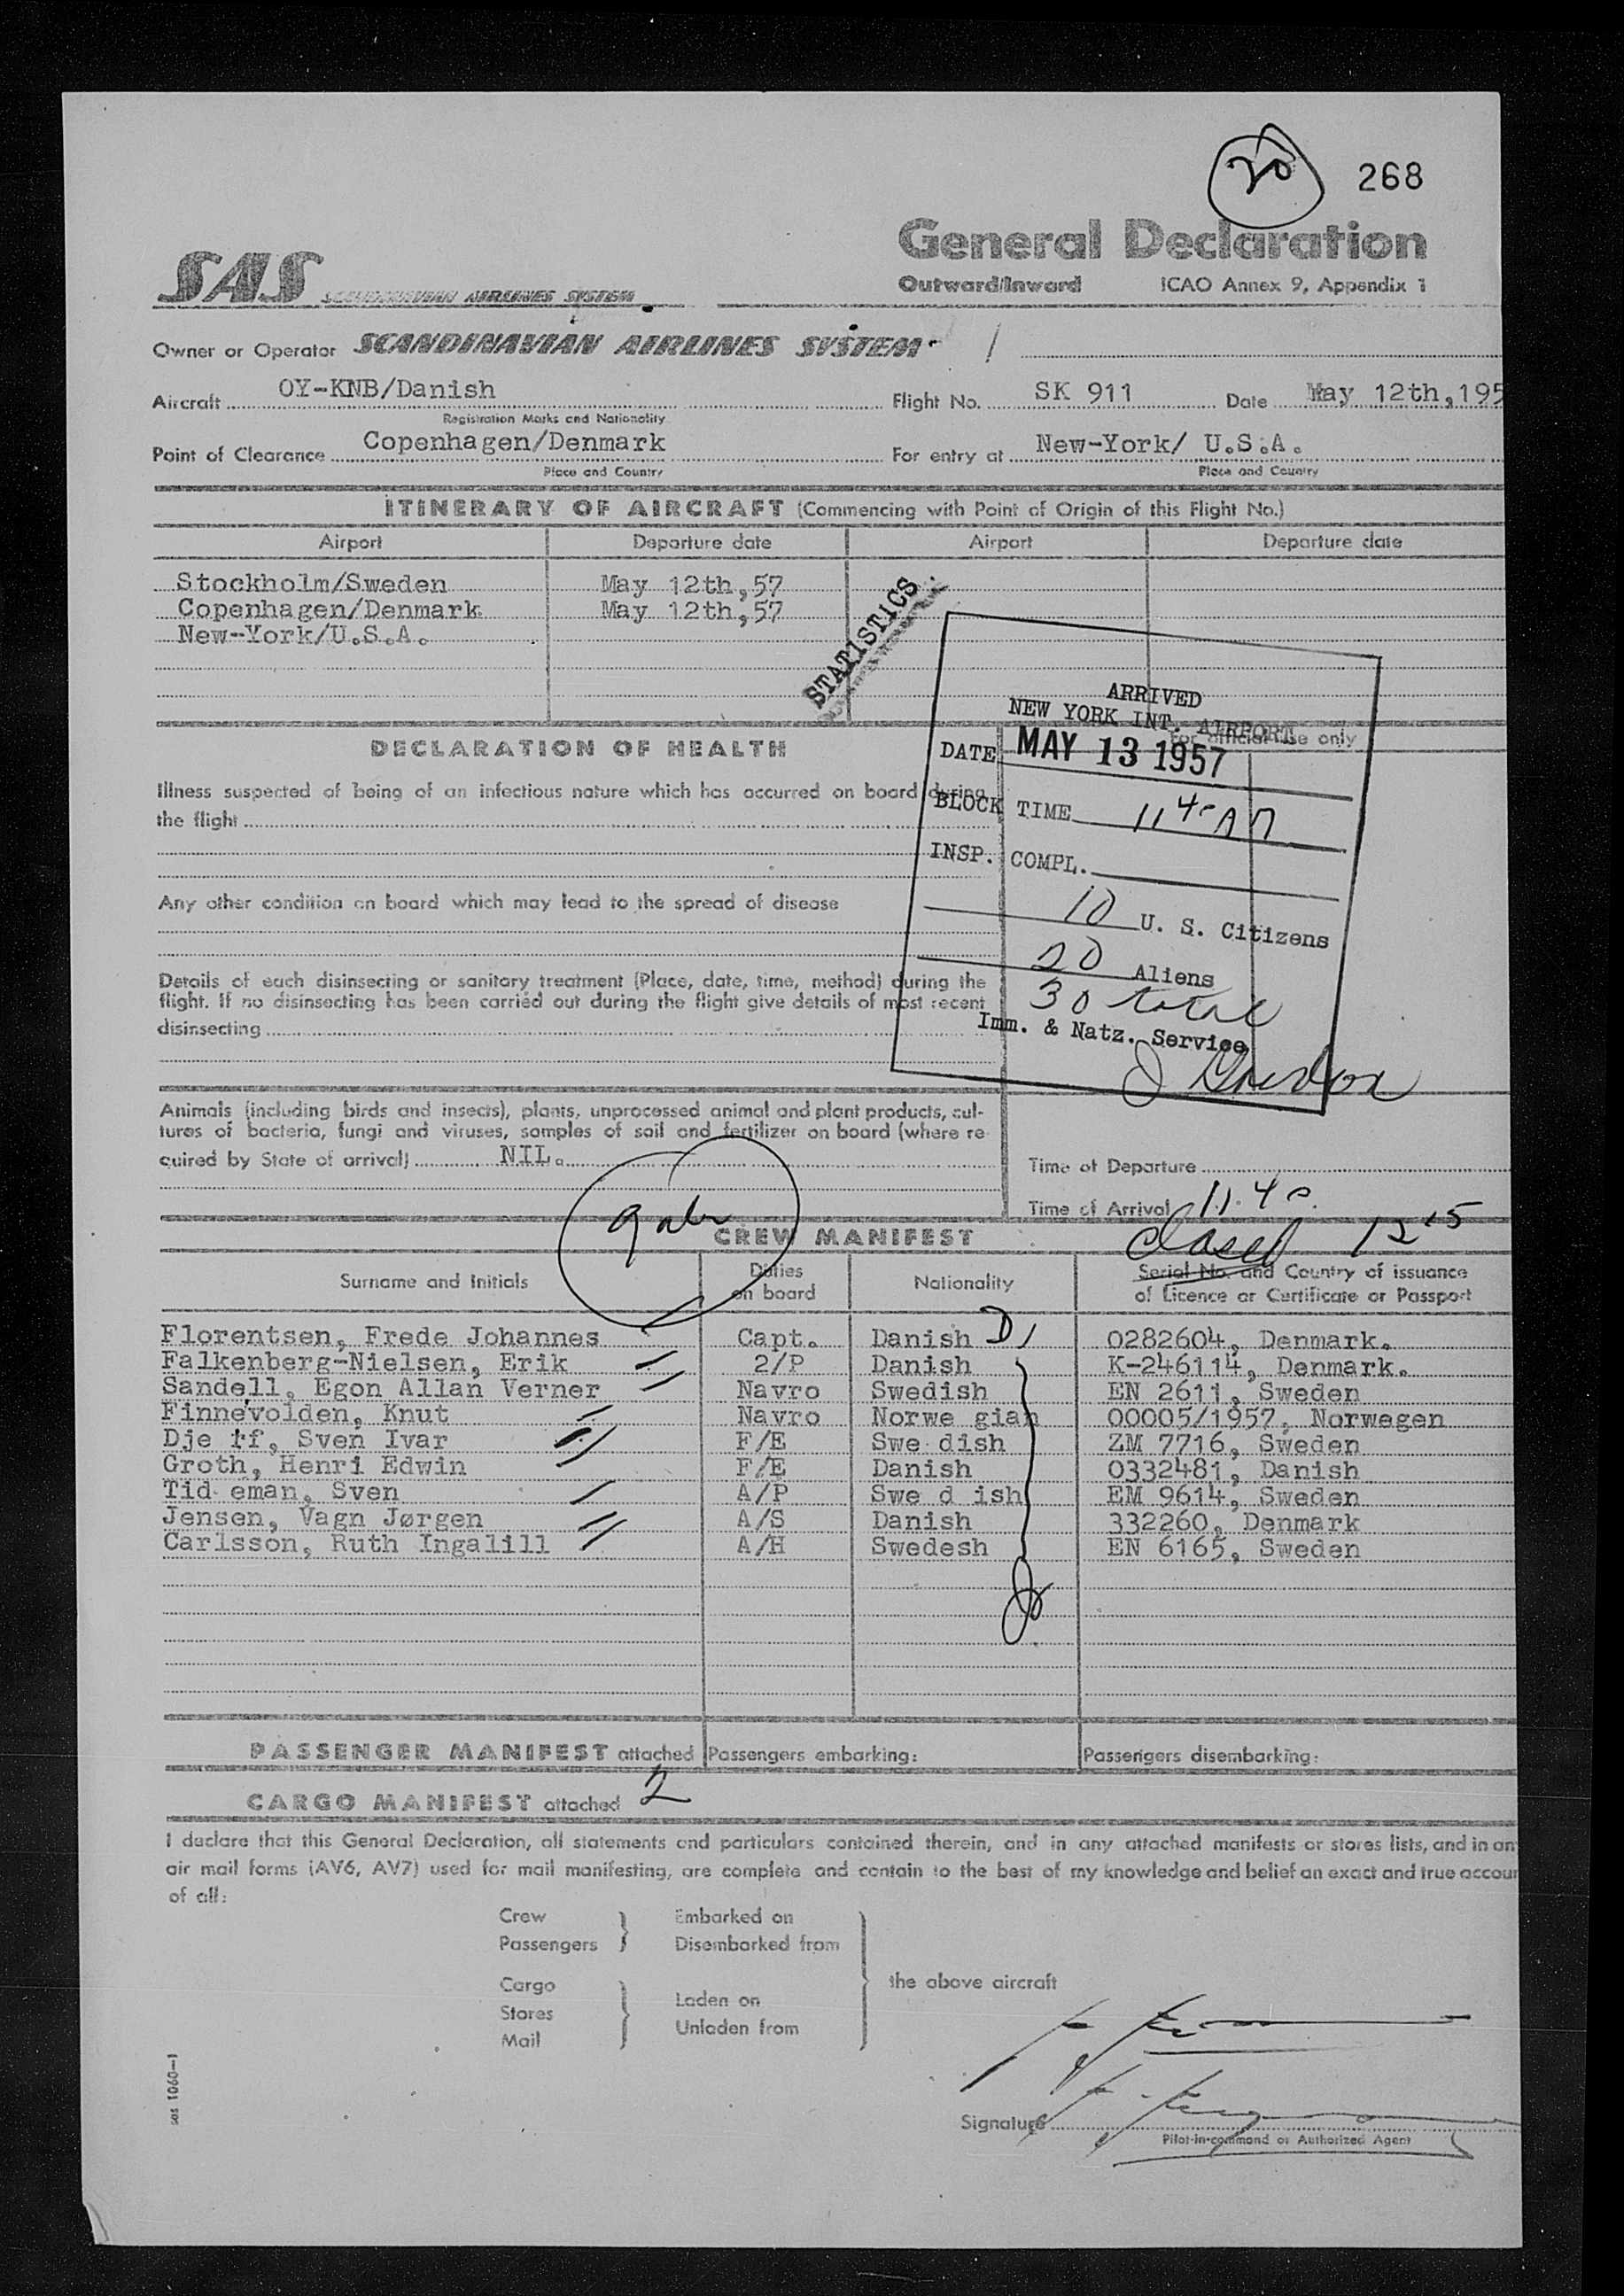 268
General Declaration
Outward/Inward ICAO Annex 9, Appendix 1
SAS SCANDINAVIAN AIRLINES SYSTEM
Owner or Operator SCANDINAVIAN AIRLINES SYSTEM
Aircraft OY-KNB/Danish Flight No. SK 911 Date May 12th, 195
Registration Marks and Nationality
Point of Clearance Copenhagen/Denmark For entry at New-York/ U.S.A.
Place and Country Place and Country
ITINERARY OF AIRCRAFT (Commencing with Point of Origin of this Flight No.)
Airport Departure date Airport Departure date
Stockholm/Sweden May 12th,57
Copenhagen/Denmark May 12th,57
New-York/U.S.A.
STATISTICS
ARRIVED
NEW YORK INT. AIRPORT
For official use only
DATE MAY 13 1957
BLOCK TIME 11 40 AM
INSP. COMPL.
10 U. S. Citizens
20 Aliens
30 total
Imm. & Natz. Service
DECLARATION OF HEALTH
Illness suspected of being of an infectious nature which has occurred on board during
the flight
Any other condition on board which may lead to the spread of disease
Details of each disinsecting or sanitary treatment (Place, date, time, method) during the
flight. If no disinsecting has been carried out during the flight give details of most recent
disinsecting
Animals (including birds and insects), plants, unprocessed animal and plant products, cul-
tures of bacteria, fungi and viruses, samples of soil and fertilizer on board (where re-
quired by State of arrival) NIL.
Time of Departure
Time of Arrival 11.40
closed 12 15
CREW MANIFEST
Surname and Initials Duties on board Nationality Serial No. and Country of issuance of Licence or Certificate or Passport
Florentsen, Frede Johannes Capt. Danish 0282604, Denmark.
Falkenberg-Nielsen, Erik 2/P Danish K-246114, Denmark.
Sandell, Egon Allan Verner Navro Swedish EN 2611, Sweden
Finnevolden, Knut Navro Norwe gian 00005/1957, Norwegen
Dje rf, Sven Ivar F/E Swe dish ZM 7716, Sweden
Groth, Henri Edwin F/E Danish 0332481, Danish
Tid eman, Sven A/P Swe d ish EM 9614, Sweden
Jensen, Vagn Jørgen A/S Danish 332260, Denmark
Carlsson, Ruth Ingalill A/H Swedesh EN 6165, Sweden
PASSENGER MANIFEST attached Passengers embarking: Passengers disembarking:
CARGO MANIFEST attached 2
I declare that this General Declaration, all statements and particulars contained therein, and in any attached manifests or stores lists, and in an
air mail forms (AV6, AV7) used for mail manifesting, are complete and contain to the best of my knowledge and belief an exact and true accoun
of all:
Crew Embarked on
Passengers Disembarked from
the above aircraft
Cargo
Stores Laden on
Mail Unladen from
sas 1060-1
Signature
Pilot-in-command or Authorized Agent